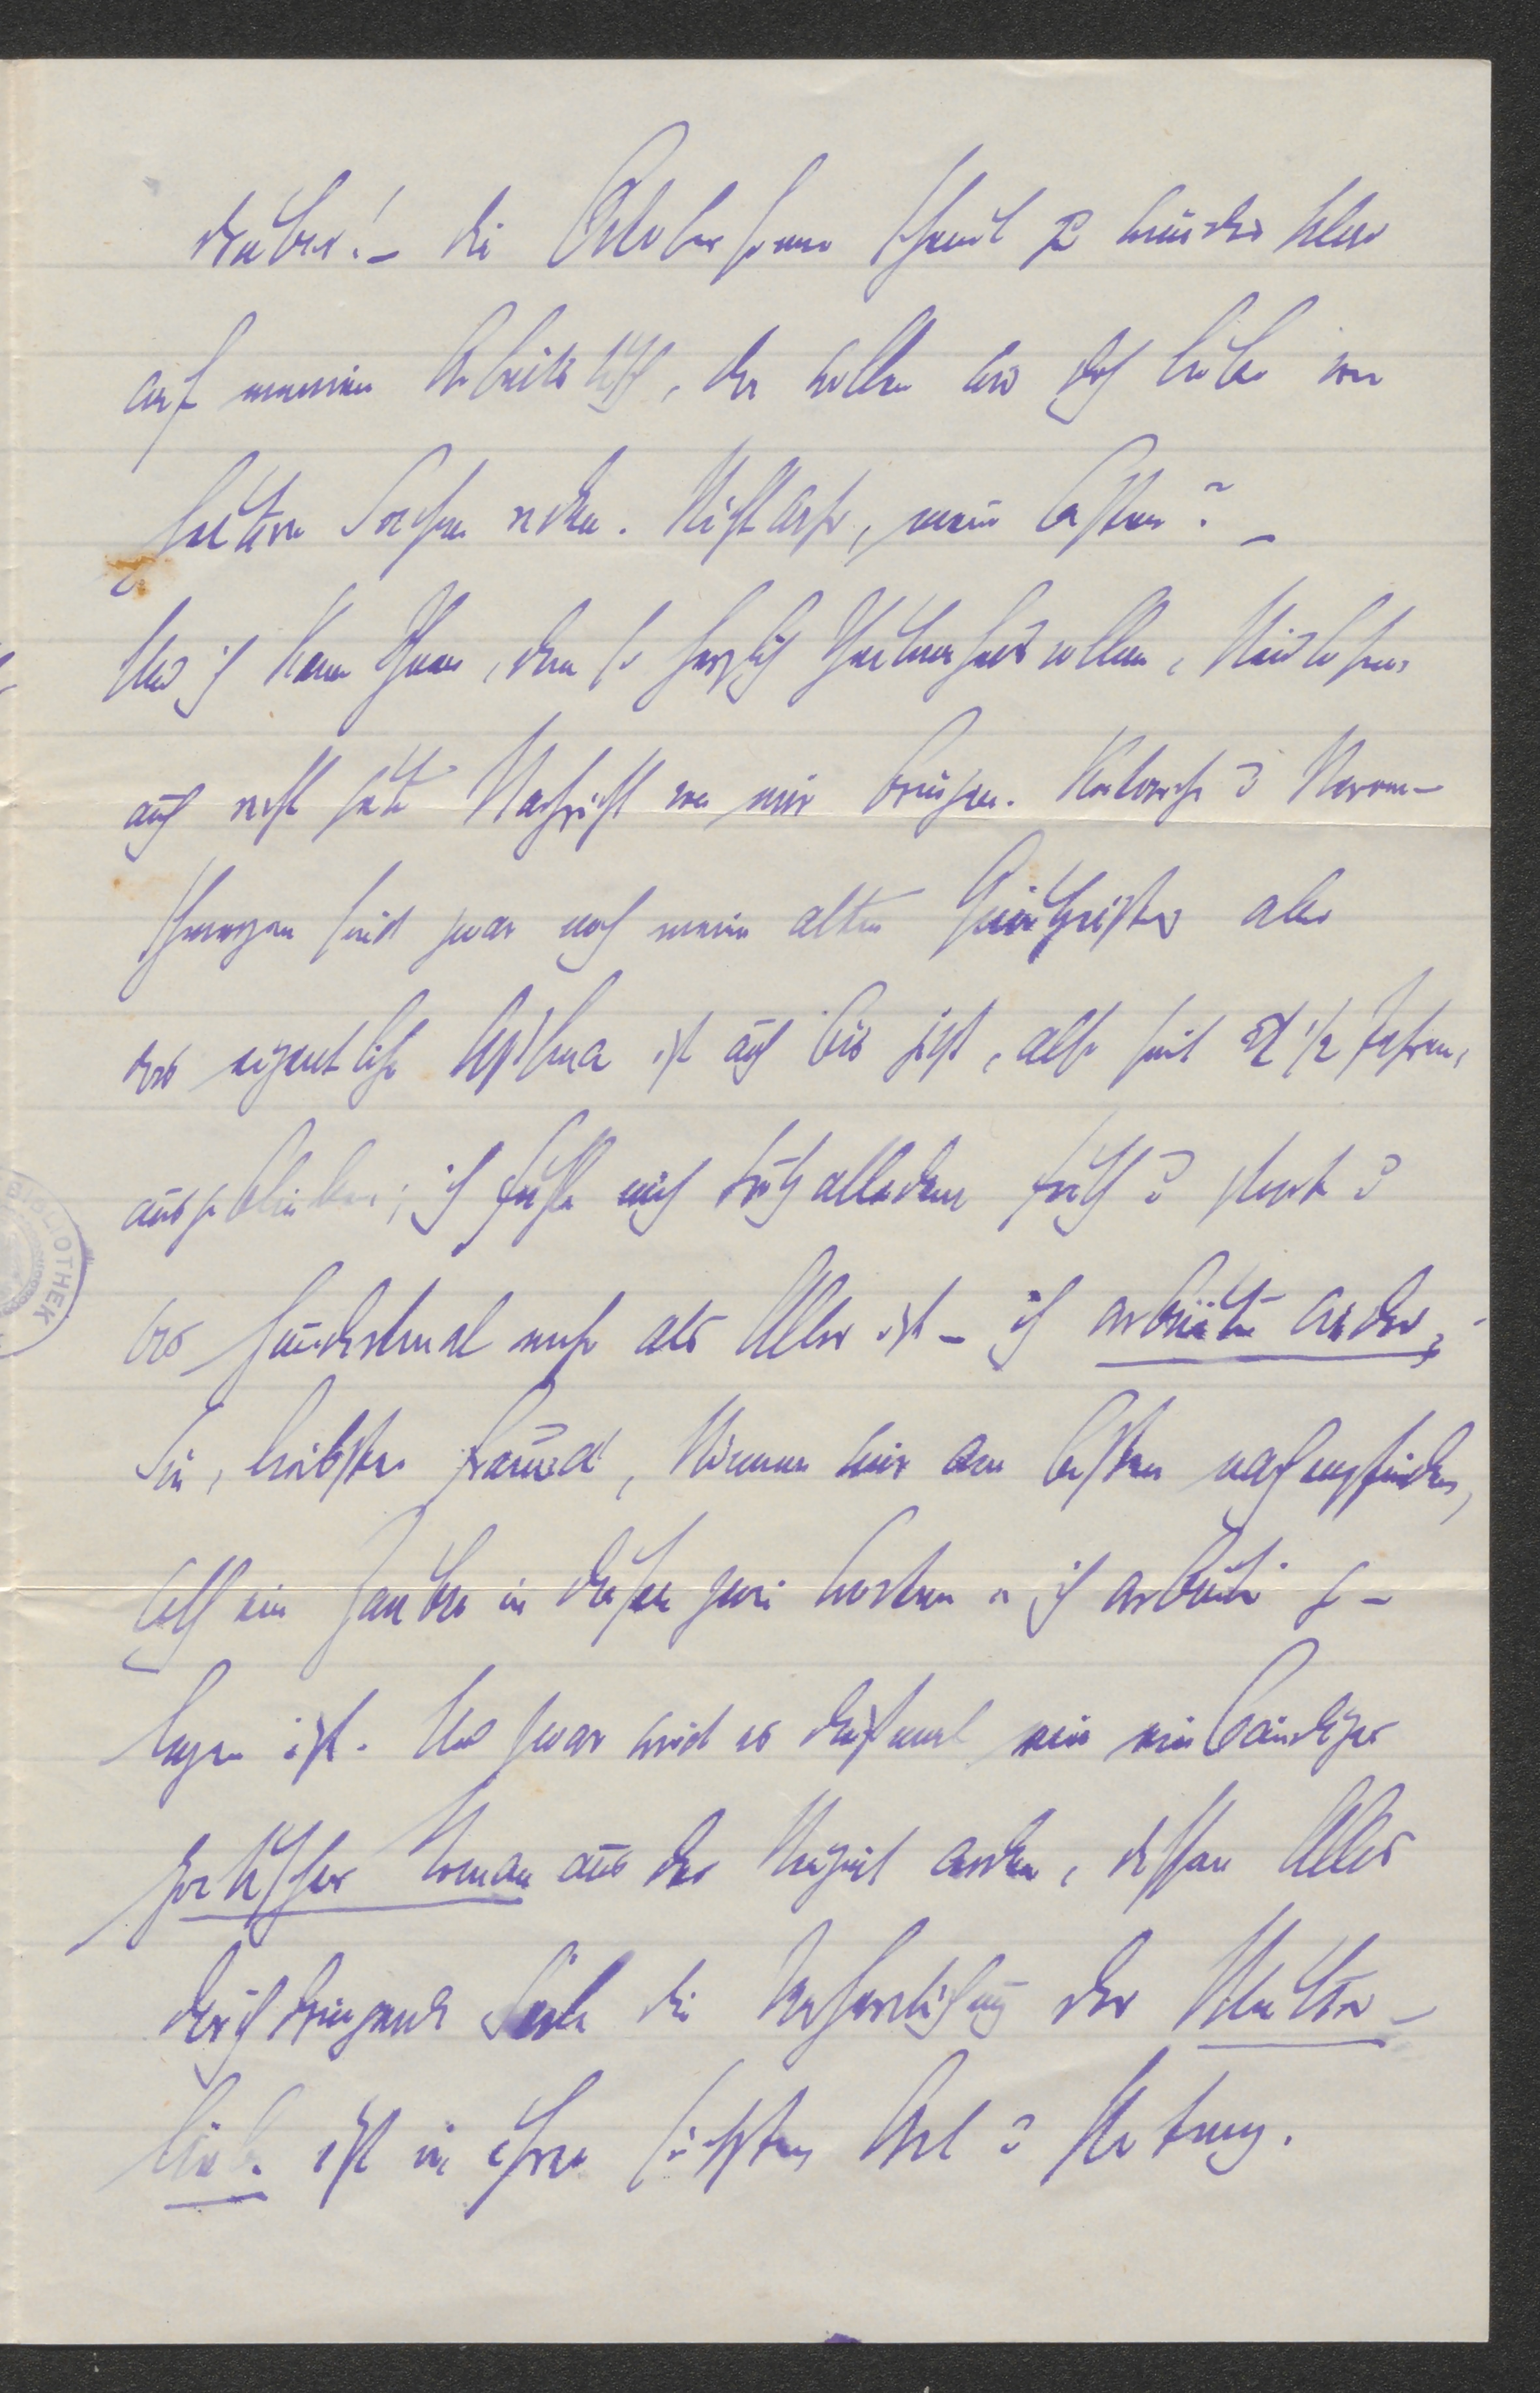 darüber! – Die Octobersonne scheint so wunderklar
auf meinen Arbeitstisch, da wollen wir doch lieber von
guten Sachen reden. Nicht wahr, mein Bester? –
Und ich kann Ihnen, dem so herzlich Theilnahmsvollen,
auch recht gute Nachricht von mir bringen. Katarrhe u Nerven-
schmerzen sind zwar noch meine alten aber
das eigentliche Asthma ist auch bis jetzt, also seit 2 1/2 Jahren,
ausgeblieben; ich fühle mich trotz alledem frisch u stark u
was hundertmal mehr als Alles ist – ich arbeite wieder,
Sie, liebster Freund, können mir am besten nachempfinden,
welch ein Zauber in diesen zwei Worten „ich arbeite" ge-
legen ist. Und zwar wird es diesmal ein einbändiger
Roman aus der Neuzeit werden, dessen Alles
durchdringende Seele die Verherrlichung der Mutter-
liebe ist in ihrer höchsten Art u